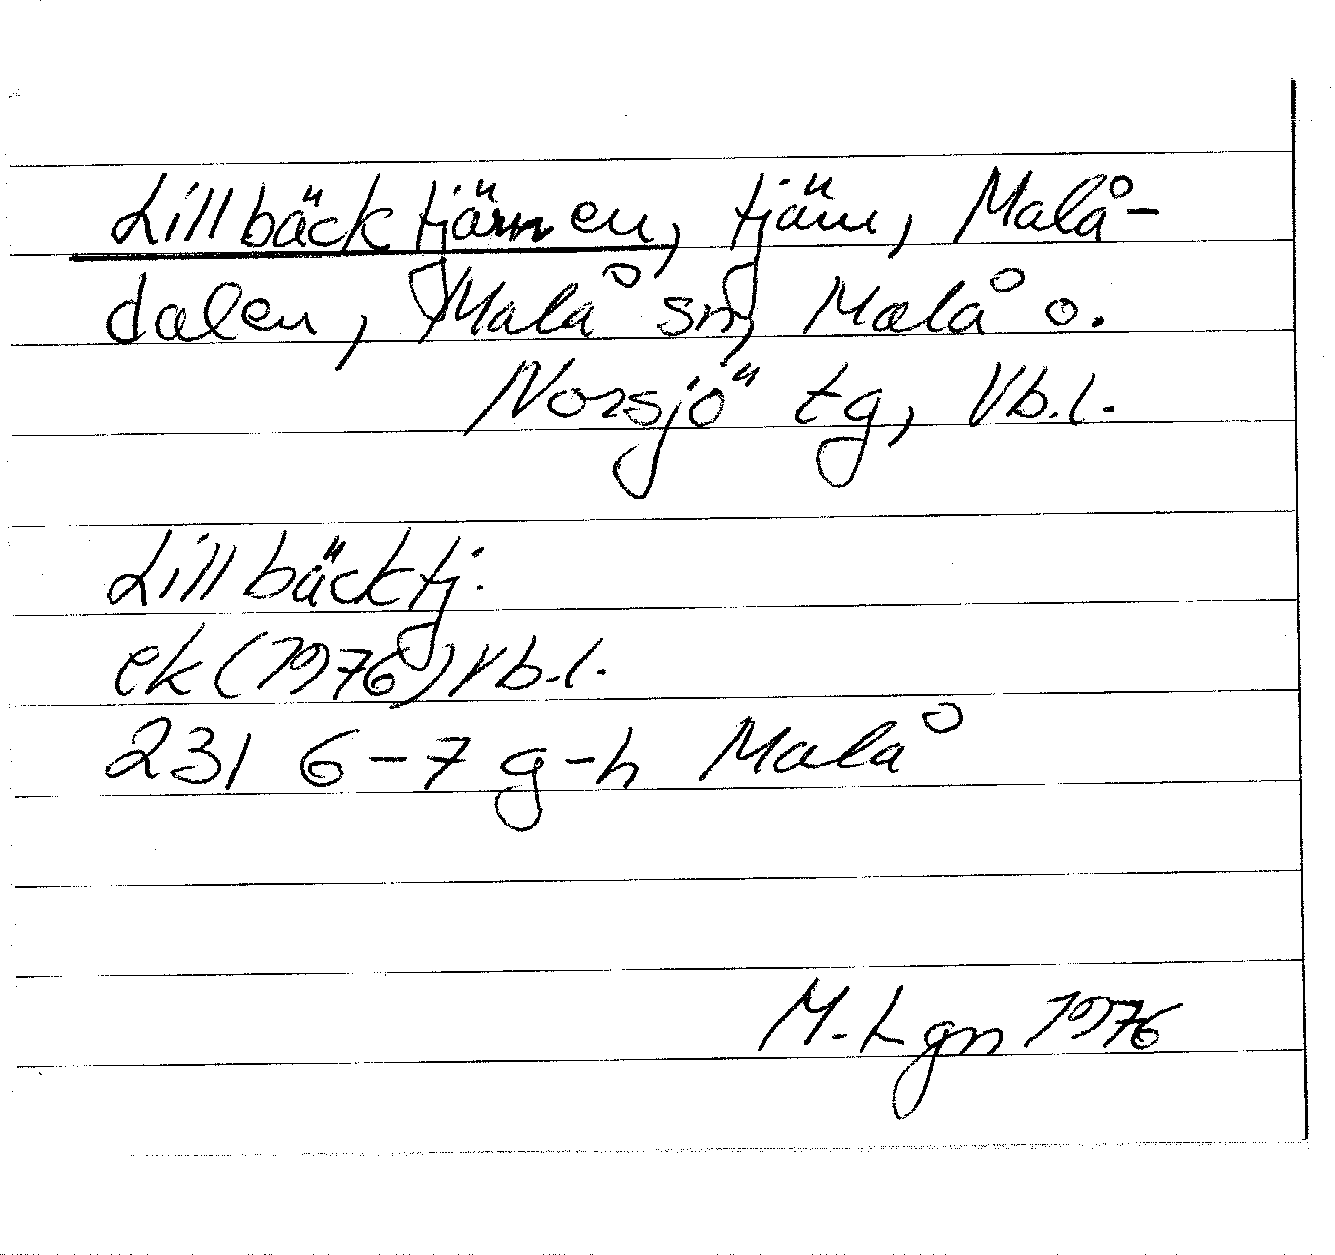 Lillbäcktjärnen, tjärn, Malå-
dalen, Malå sn, Malå o.
Norsjö tg, Vb.l.
Lillbäcktj.
ek (1976) Vb.l.
231 6-7 g-h Malå
M. Lgn 1976